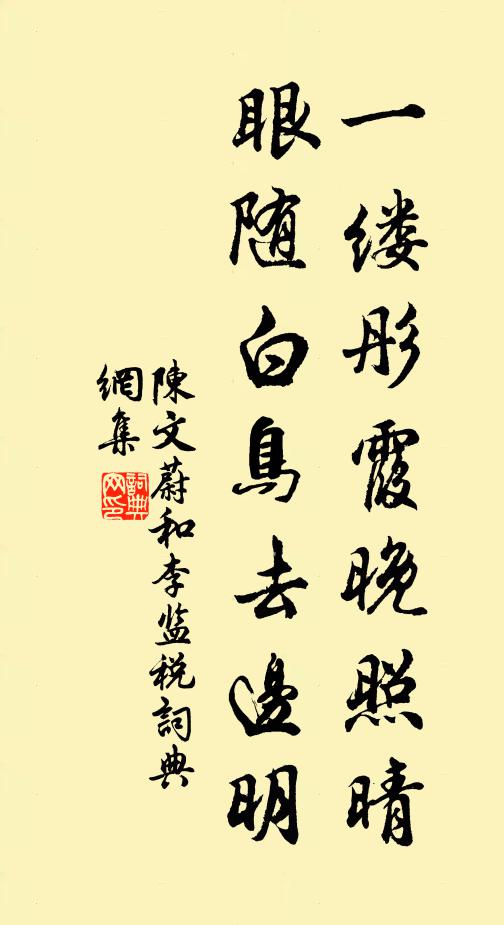 一缕彤霞晚照晴
眼随白鳥去邊明
陳文蔚和李监税詞典
網集
詞典
网印